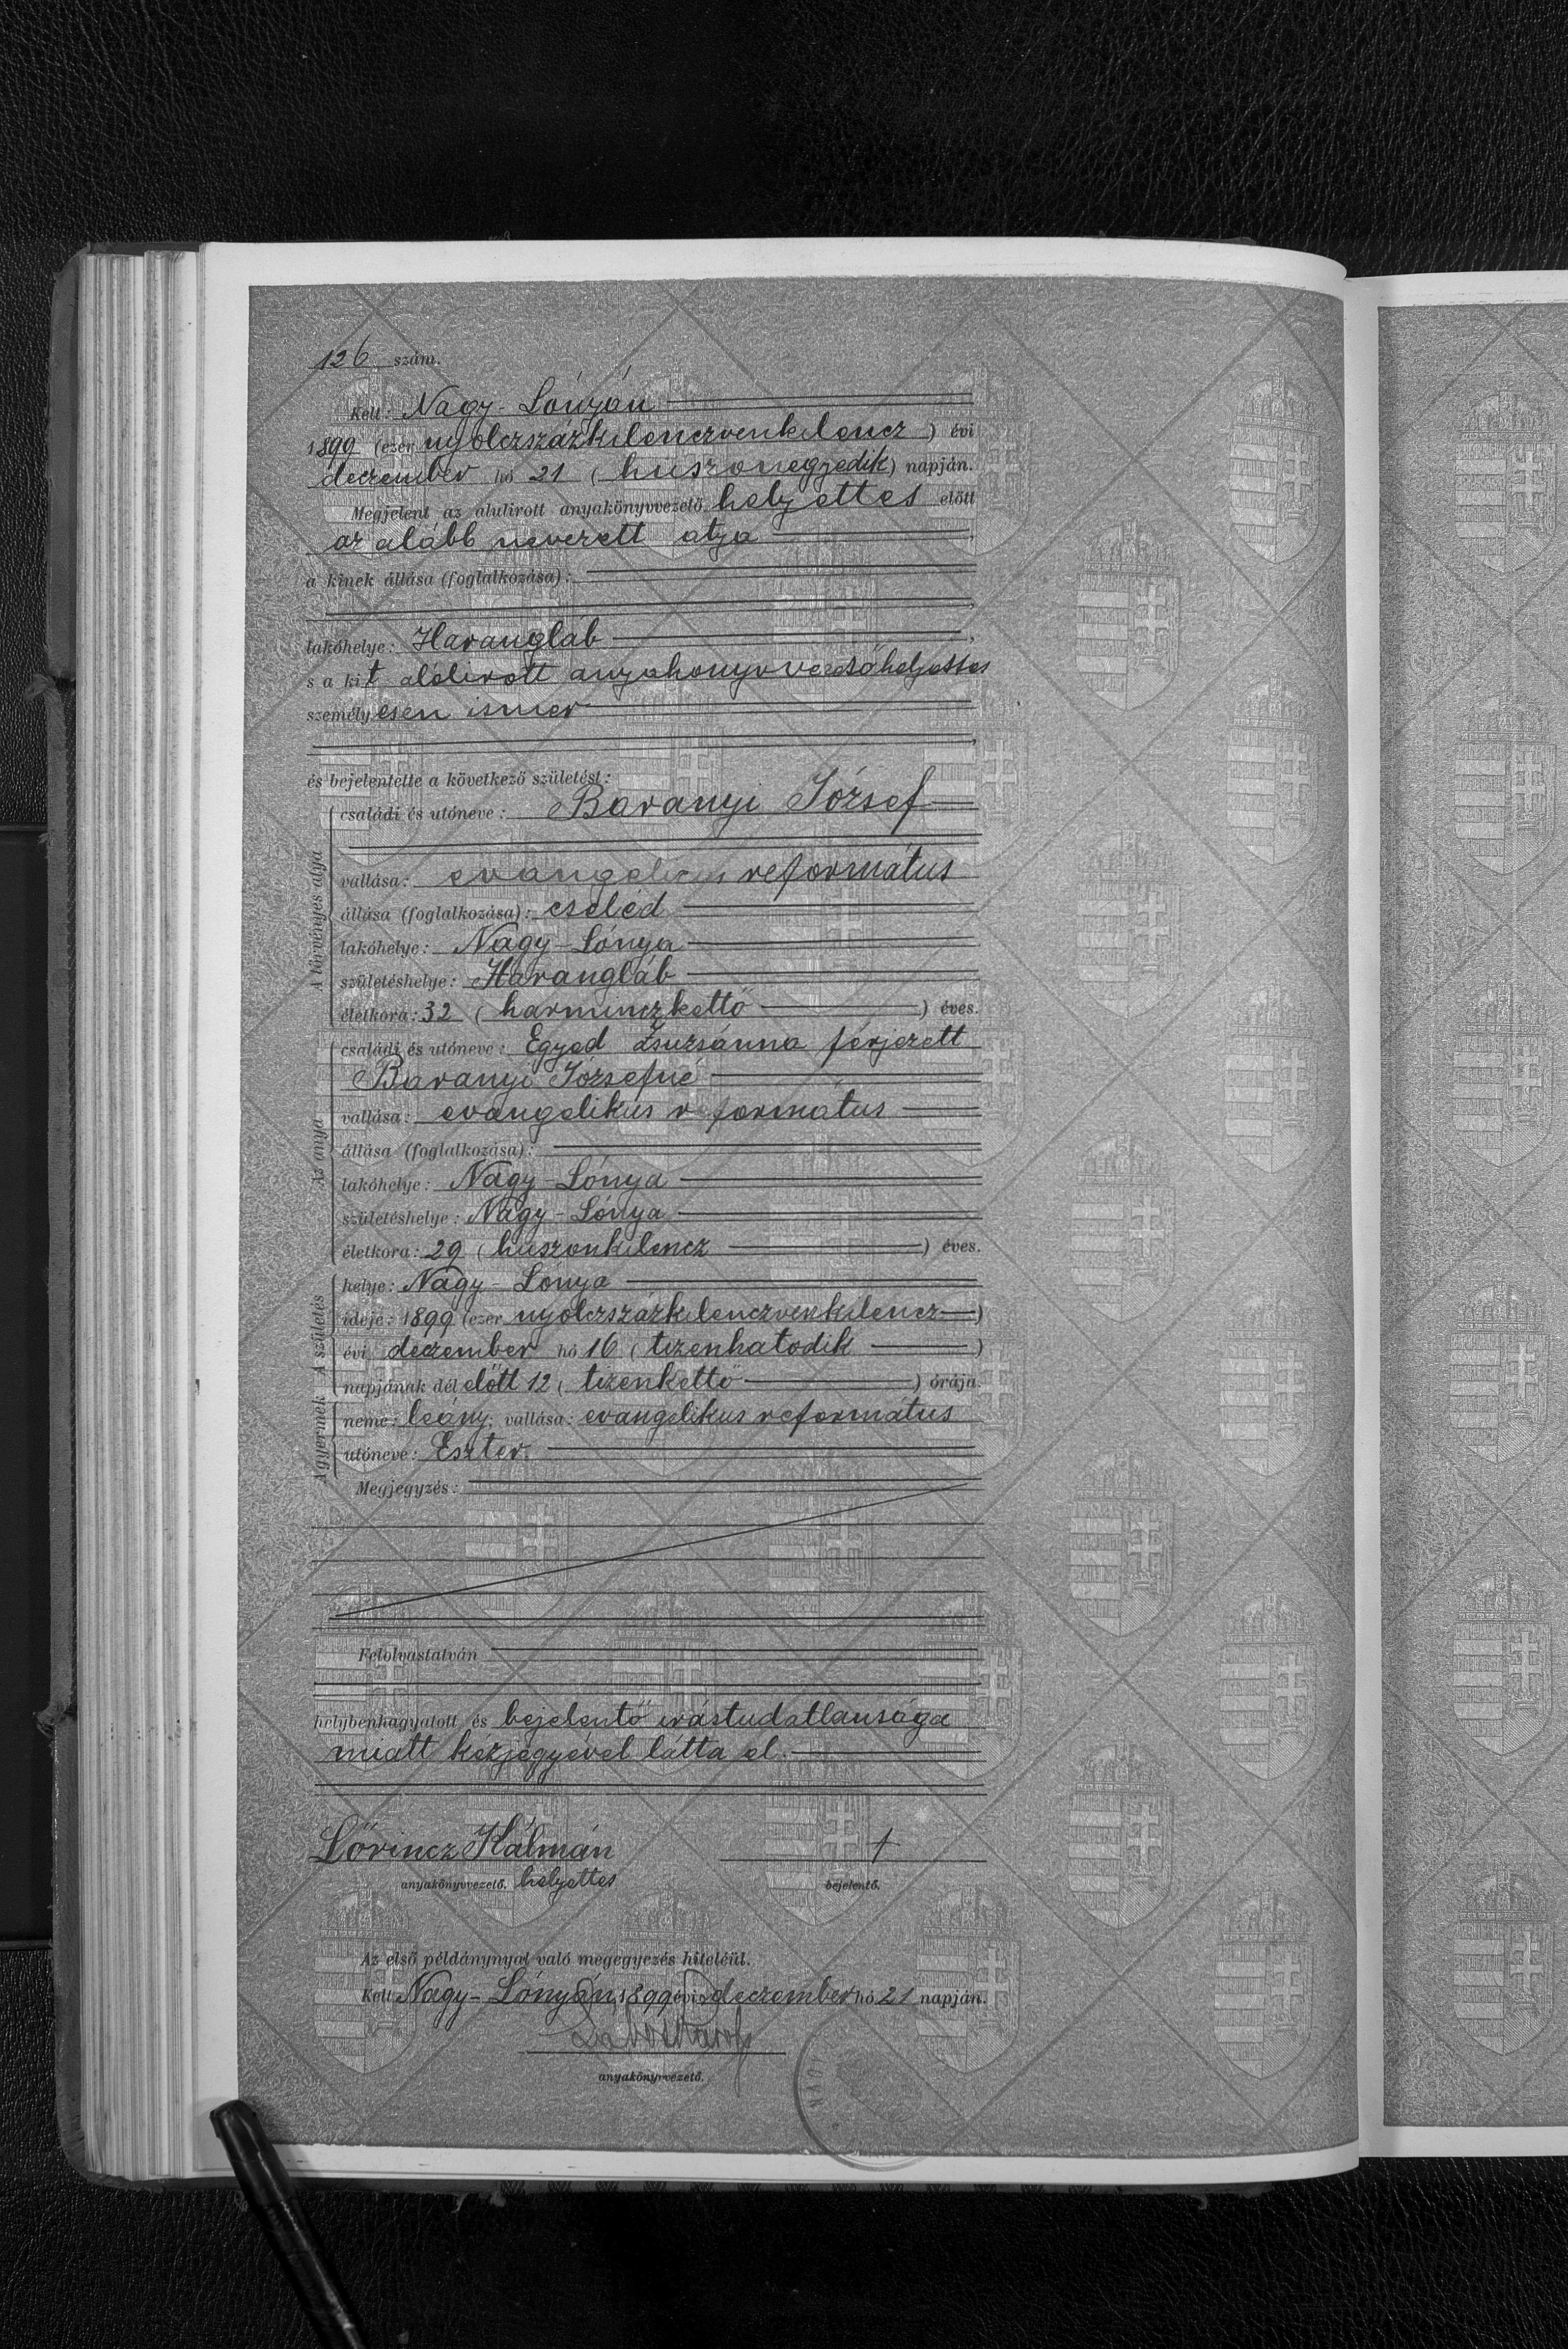 126 szám.
Kelt: Nagy-Lónyán
1899 (ezer nyolczszázkilenczvenkilencz) évi
deczember hó 21 (huszonegyedik) napján.
Megjelent az alulirott anyakönyvvezető helyettes előtt
az alább nevezett atya,
a kinek állása (foglalkozása):
lakóhelye: Harangláb,
s a kit alólirott anyakönyvvezetőhelyettes
személyesen ismer,
és bejelentette a következő születést:
A törvényes atyja
családi és utóneve: Baranyi József
vallása: evangelicus református
állása (foglalkozása): cseléd
lakóhelye: Nagy-Lónya
születéshelye: Harangláb
életkora: 32 (harminczkettő) éves.
Az anya
családi és utóneve: Egyed Zsuzsánna férjezett
Baranyi Józsefné
vallása: evangelikus református
állása (foglalkozása):
lakóhelye: Nagy-Lónya
születéshelye: Nagy-Lónya
életkora: 29 (huszonkilencz) éves.
A születés
helye: Nagy-Lónya
ideje: 1899 (ezer nyolczszázkilenczvenkilencz)
évi deczember hó 16 (tizenhatodik)
napjának dél előtt 12 (tizenkettő) órája.
A gyermek
neme: leány; vallása: evangelikus református
utóneve: Eszter.
Megjegyzés:
Felolvastatván
helybenhagyatott és bejelentő irástudatlansága
miatt kézjegyével látta el.
Lőrincz Kálmán +
anyakönyvvezető. helyettes bejelentő.
Az első példánynyal való megegyezés hiteléül.
Kelt Nagy-Lónyán 1899 évi deczember hó 21 napján.
anyakönyvvezető.